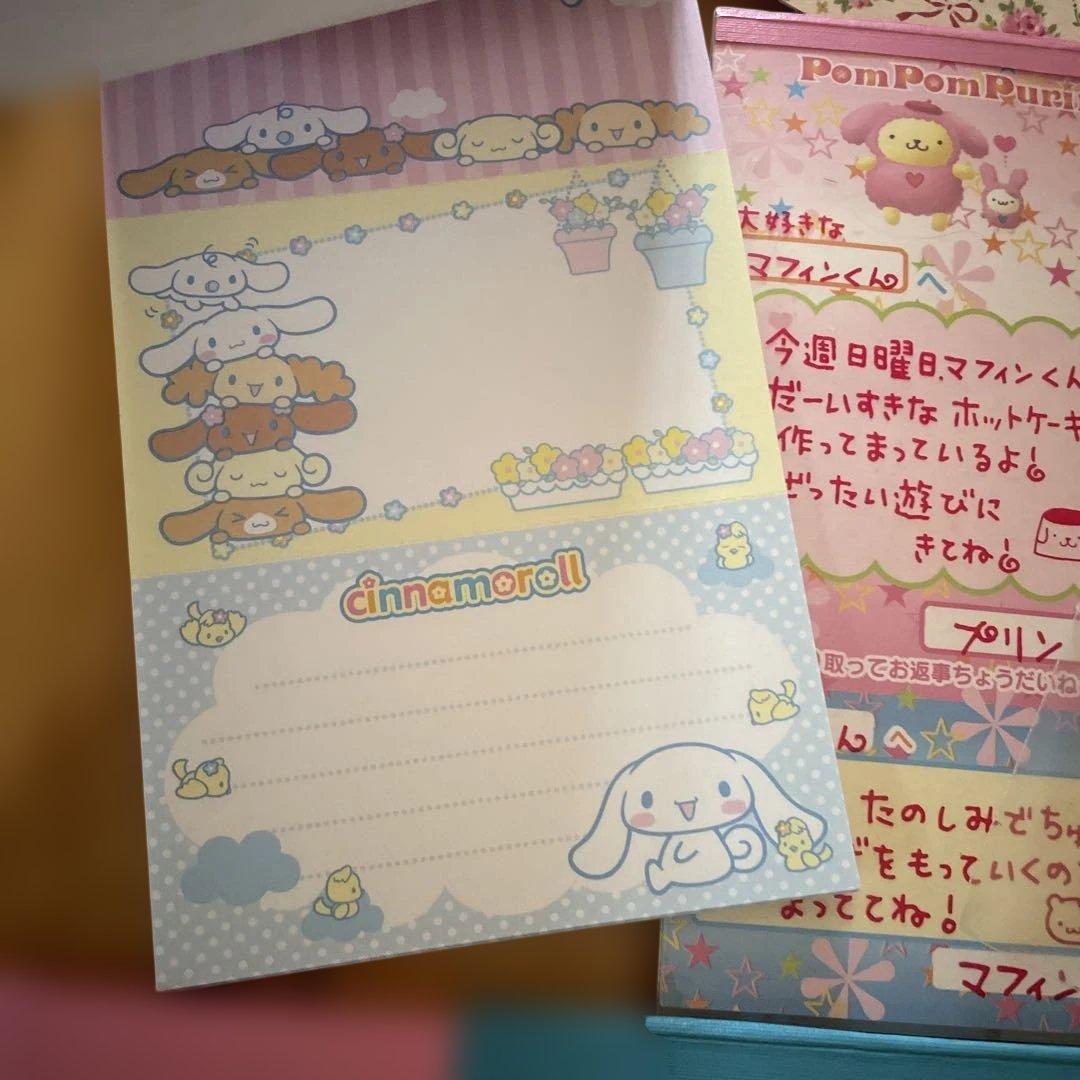 cinnamoroll
PomPomPuri
大好きな
マフィンくん へ
今週日曜日、マフィンくん
だーいすきな ホットケーキ
作ってまっているよ!
ぜったい遊びに
きてね!
プリン
取ってお返事ちょうだいね
くん へ
たのしみでちゅ
をもっていくの
まっててね!
マフィン